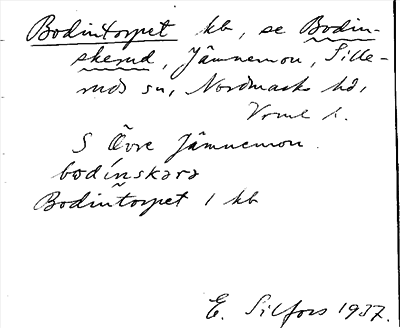 Bodintorpet kb, se Bodin-
skerud, Jämnemon, Sille-
ruds sn, Nordmarks hd,
Vrml l.
S Övre Jämnemon.
bodínskara
Bodintorpet 1 kb
E. Silfors 1937.